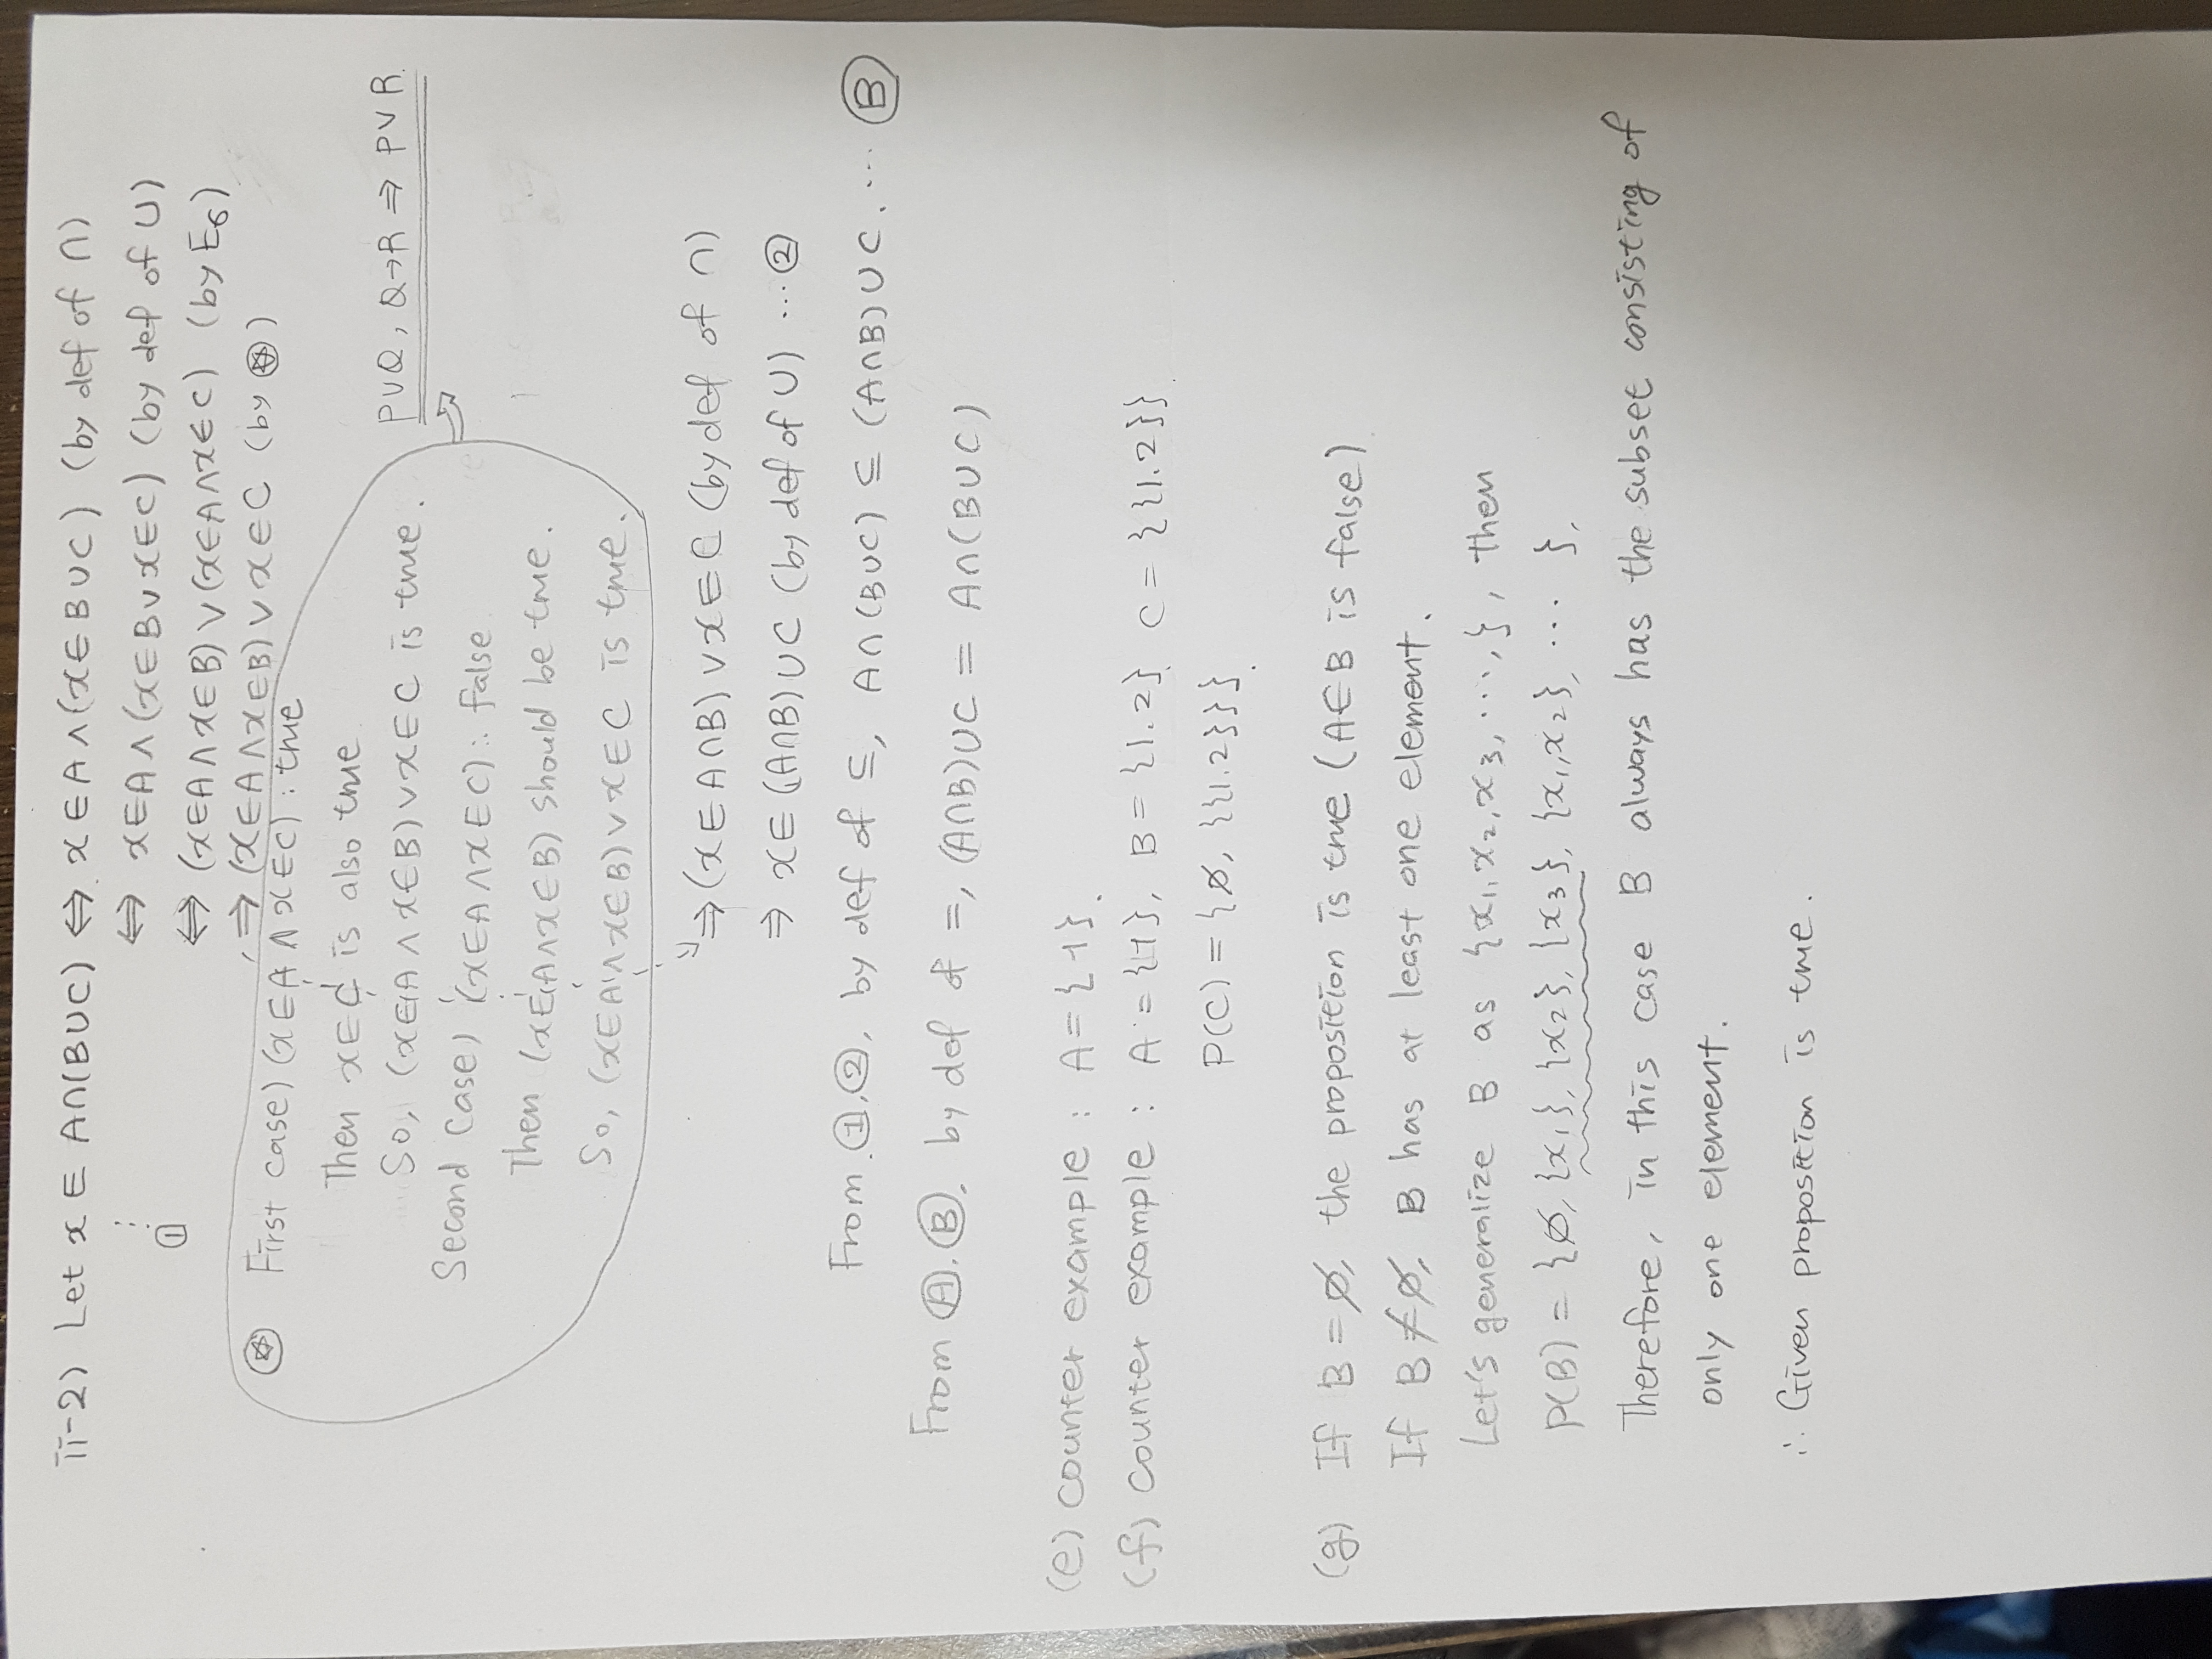 ii-2) Let x ∈ A∩(B∪C) ⇔ x∈A∧(x∈B∪C) (by def of ∩)
⇔ x∈A∧(x∈B∨x∈C) (by def of ∪)
①
⇔ (x∈A∧x∈B)∨(x∈A∧x∈C) (by E6)
⇒ (x∈A∧x∈B)∨x∈C (by ⍟)
⍟ First case) (x∈A∧x∈C) : true
Then x∈C is also true
So, (x∈A∧x∈B)∨x∈C is true.
P∨Q, Q→R ⇒ P∨R.
Second case) (x∈A∧x∈C) : false
Then (x∈A∧x∈B) should be true.
So, (x∈A∧x∈B)∨x∈C is true.
⇒ (x∈A∩B)∨x∈C (by def of ∩)
⇒ x∈(A∩B)∪C (by def of ∪) ... ②
From ①,②, by def of ⊆, A∩(B∪C) ⊆ (A∩B)∪C. ... Ⓑ
From Ⓐ,Ⓑ, by def of =, (A∩B)∪C = A∩(B∪C)
(e) counter example : A={1}.
(f) counter example : A={1}, B={1.2}. C={{1.2}}.
P(C)={∅, {{1.2}}}.
(g) If B=∅, the proposition is true (A∈B is false)
If B≠∅, B has at least one element.
Let's generalize B as {x₁,x₂,x₃, ..., }, then
P(B)={∅, {x₁}, {x₂}, {x₃}, {x₁,x₂}, ... }.
Therefore, in this case B always has the subset consisting of
only one element.
∴ Given proposition is true.